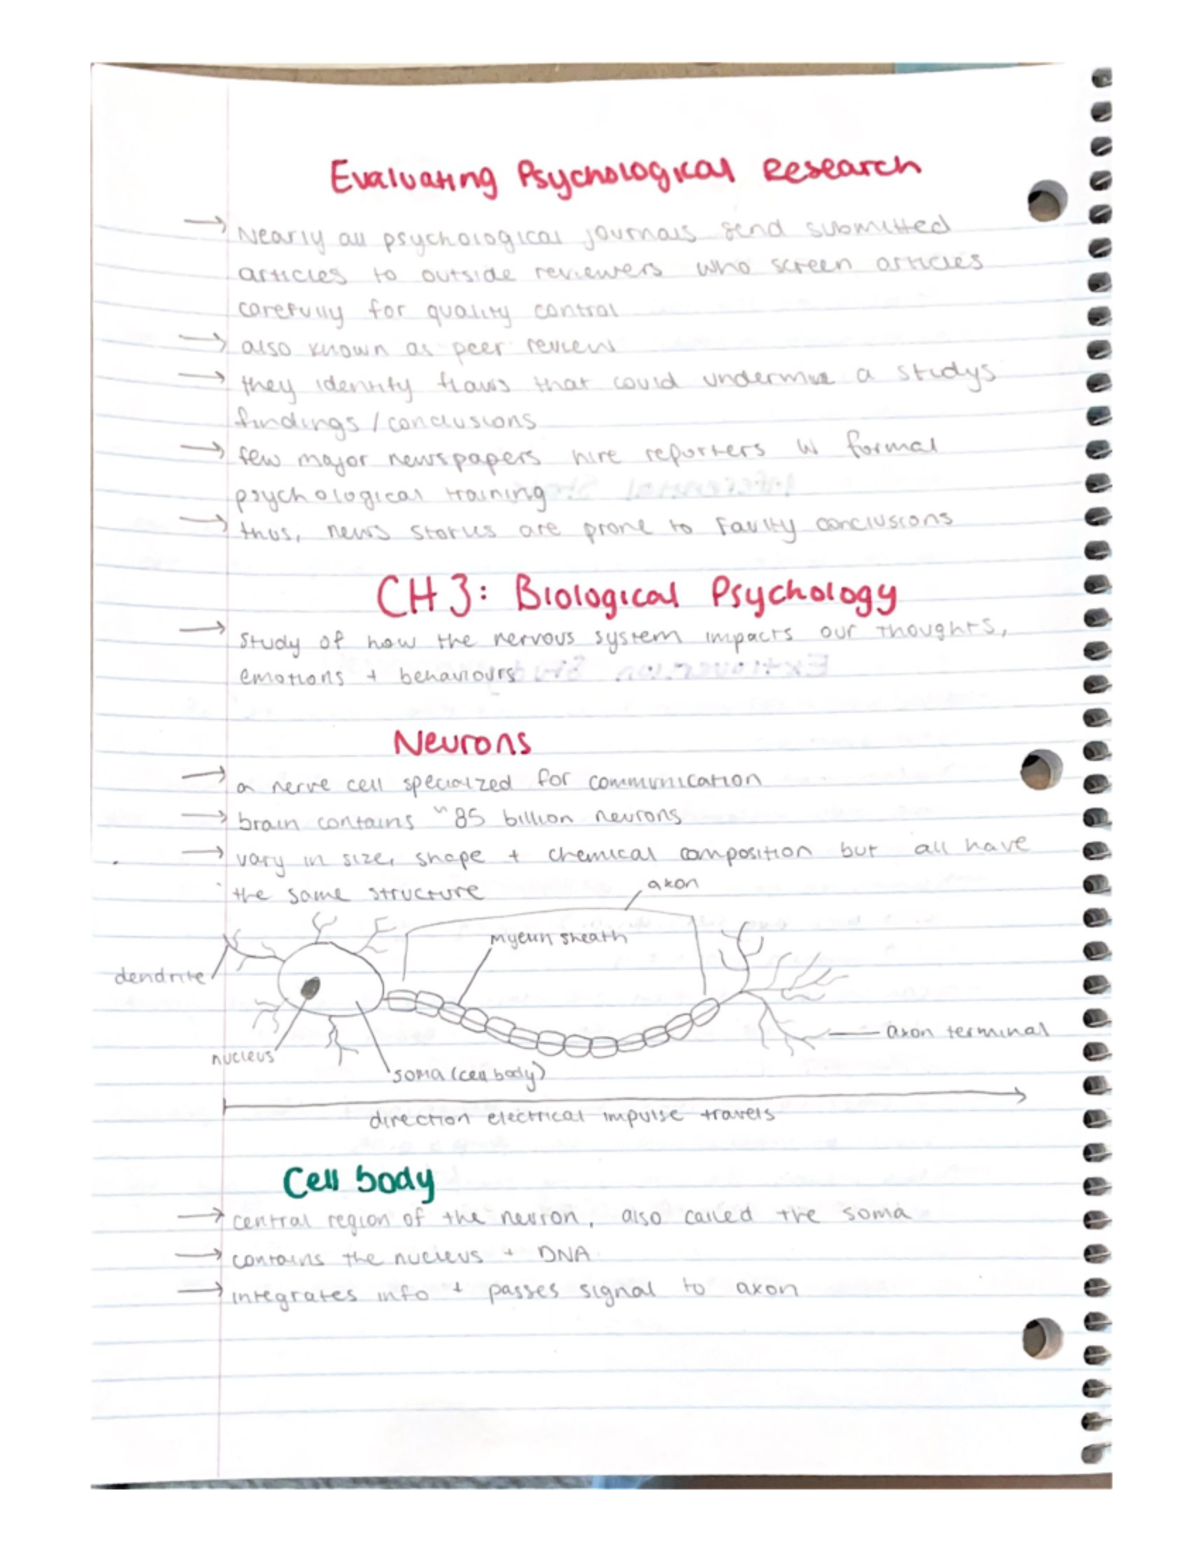 Evaluating Psychological Research
→ Nearly all psychological journals send submitted
articles to outside reviewers who screen articles
carefully for quality control
→ also known as peer review
→ they identity flaws that could undermine a studys
findings / conclusions
→ few major newspapers hire reporters w formal
psychological training
→ thus, news stories are prone to faulty conclusions
CH 3: Biological Psychology
→ study of how the nervous system impacts our thoughts,
emotions + behaviours
Neurons
→ a nerve cell specialized for communication
→ brain contains ~85 billion neurons
→ vary in size, shape + chemical composition but all have
the same structure
axon
myelin sheath
dendrite
axon terminal
nucleus
soma (cell body)
direction electrical impulse travels
Cell body
→ central region of the neuron, also called the soma
→ contains the nucleus + DNA
→ integrates info + passes signal to axon